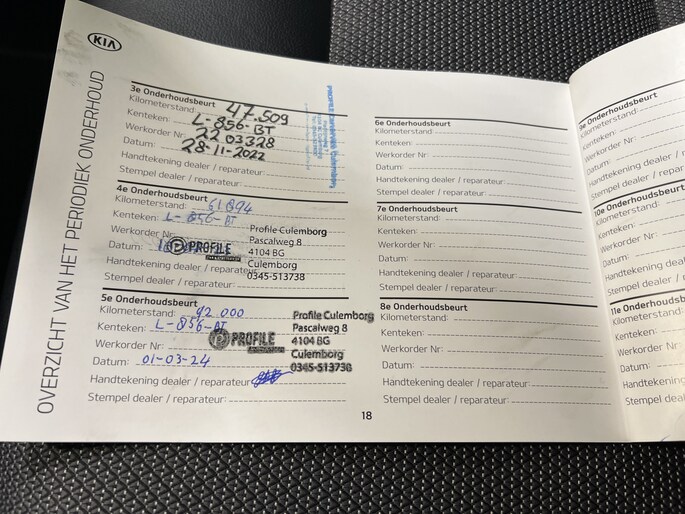 KIA
OVERZICHT VAN HET PERIODIEK ONDERHOUD
3e Onderhoudsbeurt
Kilometerstand: 47.509
Kenteken: L-856-BT
Werkorder Nr: 2203328
Datum: 28-11-2022
Handtekening dealer / reparateur:
Stempel dealer / reparateur:
4e Onderhoudsbeurt
Kilometerstand: 61894
Kenteken: L-856-BT
Werkorder Nr:
Datum:
Handtekening dealer / reparateur
Stempel dealer / reparateur:
PROFILE
Profile Culemborg
Pascalweg 8
4104 BG
Culemborg
0345-513738
5e Onderhoudsbeurt
Kilometerstand: 92 000
Kenteken: L-856-BT
Werkorder Nr:
Datum: 01-03-24
Handtekening dealer / reparateur
Stempel dealer / reparateur:
PROFILE
Profile Culemborg
Pascalweg 8
4104 BG
Culemborg
0345-513738
6e Onderhoudsbeurt
Kilometerstand:
Kenteken:
Werkorder Nr:
Datum:
Handtekening dealer / reparateur:
Stempel dealer / reparateur:
7e Onderhoudsbeurt
Kilometerstand:
Kenteken:
Werkorder Nr:
Datum:
Handtekening dealer / reparateur:
Stempel dealer / reparateur:
8e Onderhoudsbeurt
Kilometerstand:
Kenteken:
Werkorder Nr:
Datum:
Handtekening dealer / reparateur:
Stempel dealer / reparateur:
18
9e Onderhoudsbeurt
Kilometerstand:
Kenteken:
Werkorder Nr:
Datum:
Handtekening dealer /
Stempel dealer / repar
10e Onderhoudsbeurt
Kilometerstand:
Kenteken:
Werkorder Nr:
Datum:
Handtekening dealer /
Stempel dealer / re
11e Onderhoudsb
Kilometerstand:
Kenteken:
Werkorder Nr:
Datum:
Handtekening
Stempel deal